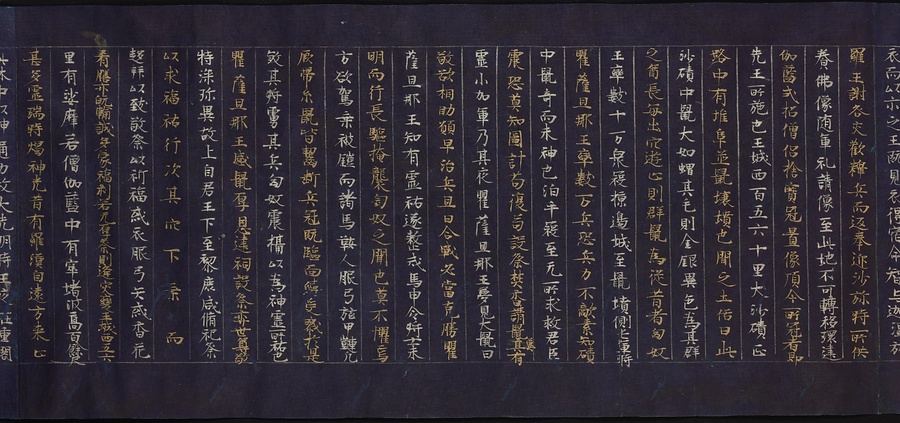 衣而以示之王既見衣得宿命智与迦濕
羅王謝咎交歡釋兵而返奉迎沙弥時所供
養佛像隨軍礼請像至此地不可轉移環建
伽藍式招僧侶捨寶冠置像頂今所冠者即
先王所施也王城西百五六十里大沙磧正
路中有堆阜並鼠壤墳也聞之土俗曰此
沙磧中鼠大如蝟其毛則金銀異色為其群
之酋長每出穴遊止則群鼠為從昔者匈奴
王率數十万衆寇掠邊城至鼠墳側屯軍時
瞿薩旦那王率數万兵恐兵力不敵素知磧
中鼠奇而未神也洎乎寇至无所求救君臣
震恐莫知圖計苟復苟設祭焚香請鼠冀其有
靈小加軍力其夜瞿薩旦那王夢見大鼠曰
敬欲相助願早治兵旦日合戰必當克勝瞿
薩旦那王知有靈祐遂整戎馬申令將士未
明而行長驅掩襲匈奴之聞也莫不懼焉
方欲駕乗被鎧而諸馬鞍人服弓弦甲縺凡
厥帶系鼠皆齧斷兵寇既臨面縛受戮於是
殺其將虜其兵匈奴震攝以為神靈所祐也
瞿薩旦那王感鼠厚恩建祠設祭奕世遵敬
特深珍異故上自君王下至黎庶咸脩祀祭
以求福祐行次其穴下乗而
趨拜以致敬祭以祈福或衣服弓矢或香花
肴膳亦既輸誠多蒙福利若无享祭則逢灾變王城西五六
里有娑摩若僧伽藍中有窣堵波高百餘尺
甚多靈瑞時燭神光昔有羅漢自遠方來止
此林中以神通力放大光明時王夜在重閣